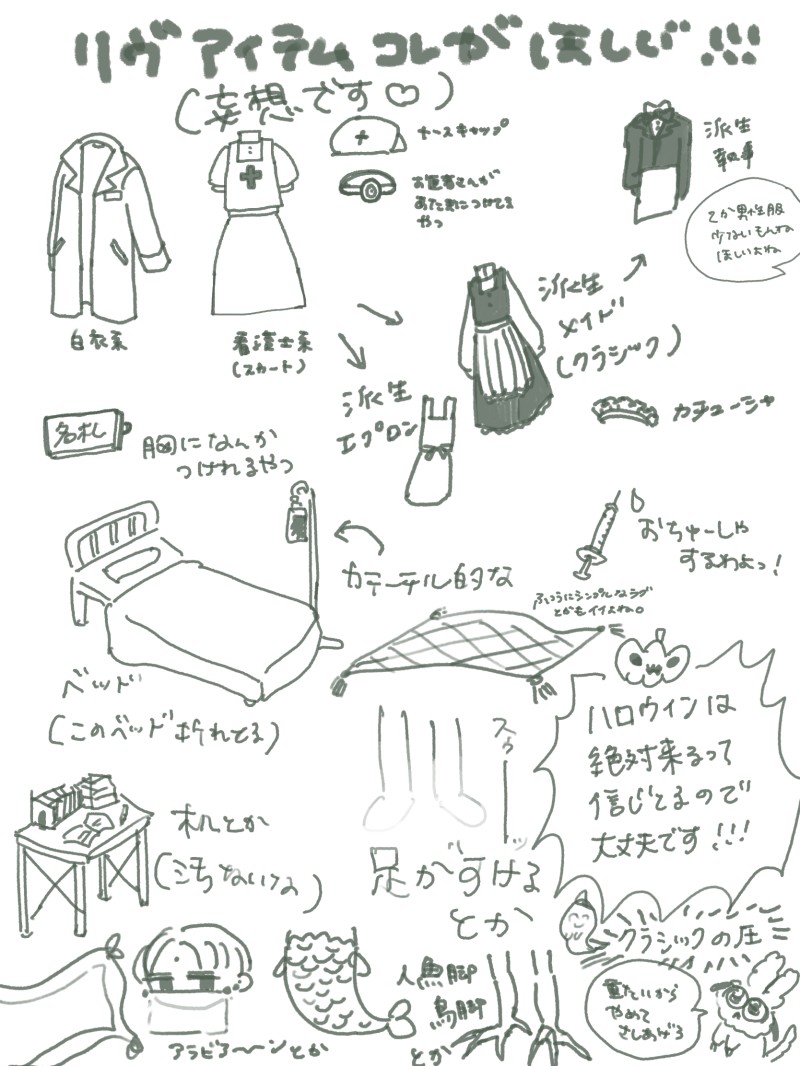 リヴ アイテム コレがほしい!!!
(妄想です♡)
ナースキャップ
お医者さんが
あたまにつけてる
やつ
派生
執事
てか男性服
少ないもんね
ほしいよね
白衣系
看護士系
(スカート)
派生
メイド
(クラシック)
派生
エプロン
カチューシャ
名札
胸になんか
つけれるやつ
おちゅーしゃ
するわよっ!
カテーテル的な
ふつうにシンプルなラグ
とかもイイよね。
ベッド
(このベッド折れてる)
ハロウィンは
絶対来るって
信じてるので
大丈夫です!!!
スゥーッ
足がすける
とか
机とか
(汚ないけね)
クラシックの圧
重たいから
やめて
さしあげろ
人魚脚
鳥脚
とか
アラビア〜ンとか